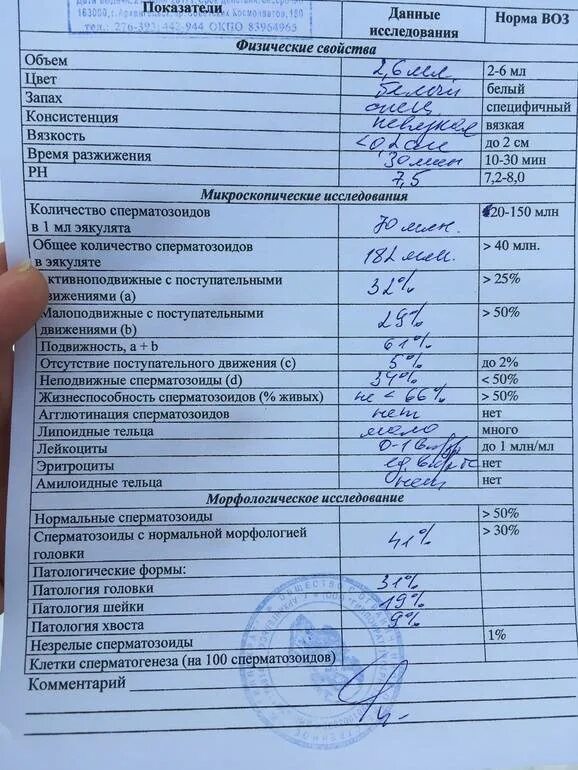 163000, г. Архангельск, пр. Советских Космонавтов, 180
тел.: 276-393, 442-944 ОКПО 83964965
Показатели Данные исследования Норма ВОЗ
Физические свойства
Объем 2,6 мл 2-6 мл
Цвет белый белый
Запах спец специфичный
Консистенция невязкая вязкая
Вязкость <0,2 см до 2 см
Время разжижения 30 мин 10-30 мин
РН 7,5 7,2-8,0
Микроскопические исследования
Количество сперматозоидов
в 1 мл эякулята 70 млн. 20-150 млн
Общее количество сперматозоидов
в эякуляте 182 млн. > 40 млн.
Активноподвижные с поступательными
движениями (а) 32% > 25%
Малоподвижные с поступательными
движениями (b) 29% > 50%
Подвижность, a + b 61%
Отсутствие поступательного движения (с) 5% до 2%
Неподвижные сперматозоиды (d) 34% < 50%
Жизнеспособность сперматозоидов (% живых) не < 66% > 50%
Агглютинация сперматозоидов нет нет
Липоидные тельца мало много
Лейкоциты 0-1 до 1 млн/мл
Эритроциты ед нет
Амилоидные тельца нет нет
Морфологическое исследование
Нормальные сперматозоиды > 50%
Сперматозоиды с нормальной морфологией
головки 41% > 30%
Патологические формы:
Патология головки 31%
Патология шейки 19%
Патология хвоста 9%
Незрелые сперматозоиды 1%
Клетки сперматогенеза (на 100 сперматозоидов)
Комментарий